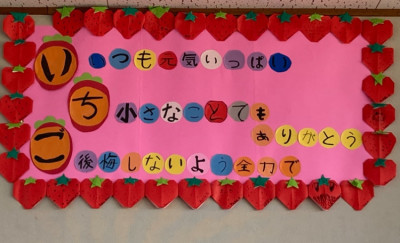 いつも元気いっぱい
ち小さなことでも
ありがとう
ご後悔しないよう全力で